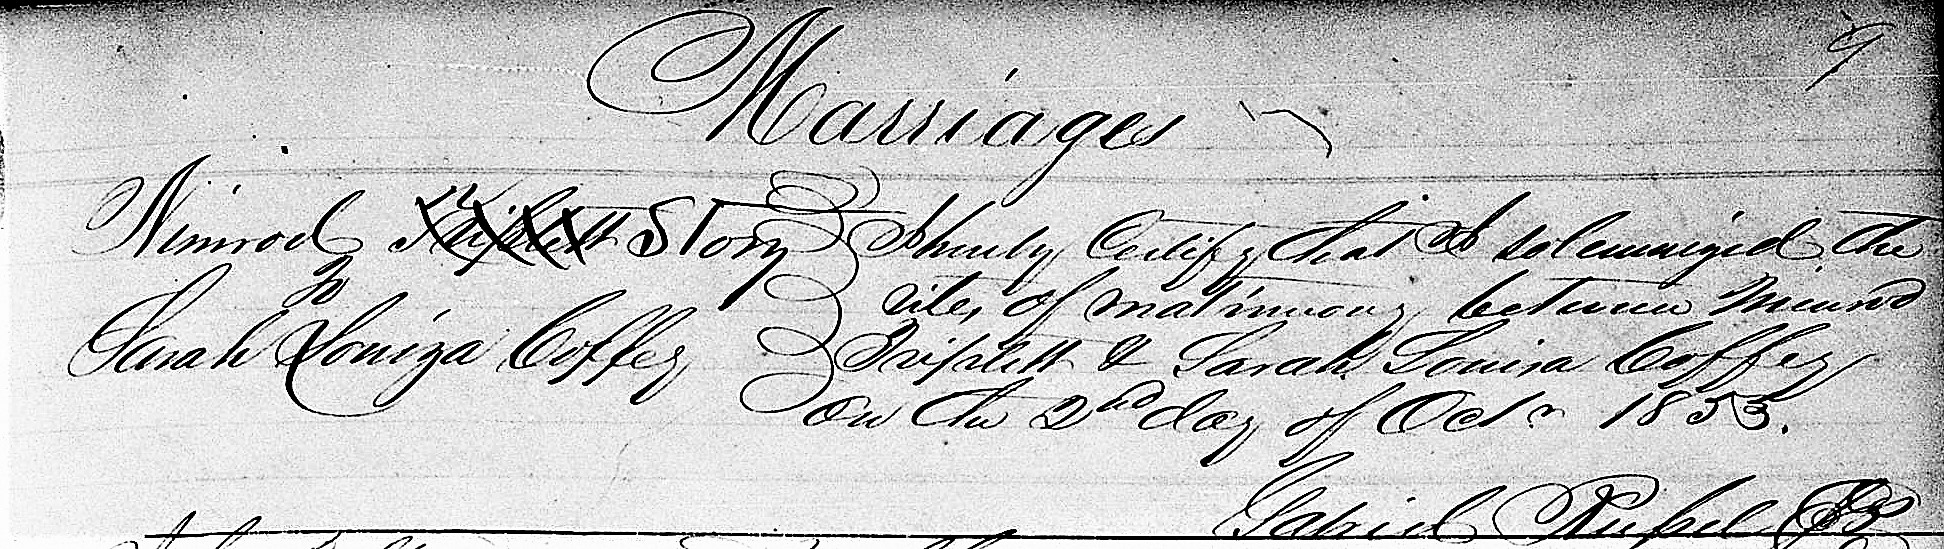 9
Marriages
Nimrod Triplett Story
to
Sarah Louiza Coffey
I hereby Certify that I solemnized the
rites of matrimony between Nimrod
Triplett & Sarah Louisa Coffey
on the 2nd day of Octr 1853.
Gabriel Russel